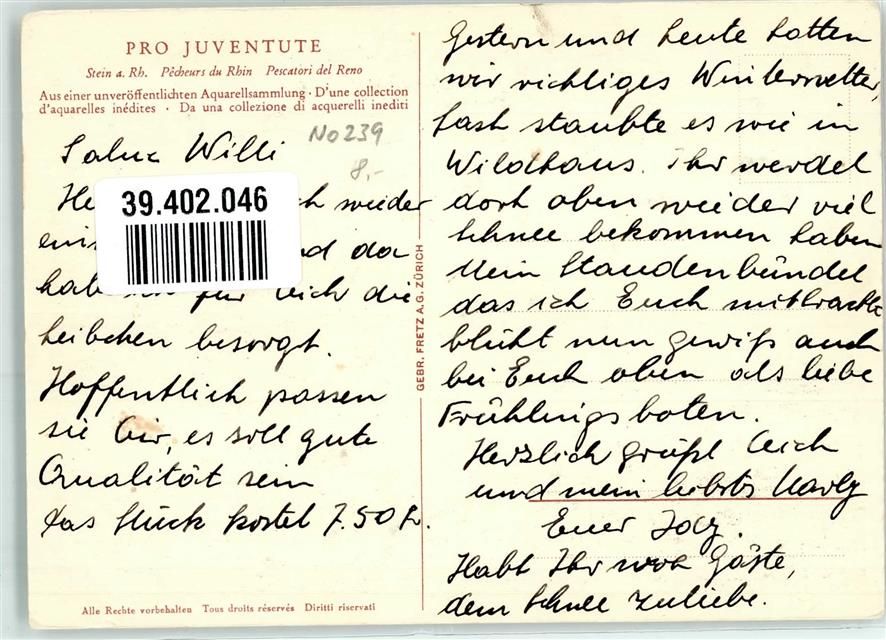 PRO JUVENTUTE
Stein a. Rh. Pêcheurs du Rhin Pescatori del Reno
Aus einer unveröffentlichten Aquarellsammlung · D'une collection
d'aquarelles inédites · Da una collezione di acquerelli inediti
No 239
8,-
Salue Willi
39.402.046
wieder
da
für Dich die
Leibchen besorgt.
Hoffentlich passen
sie Dir, es soll gute
Qualität sein
das Stück kostet 7.50 Fr.
GEBR. FRETZ A.G. ZÜRICH
Gestern und heute hatten
wir richtiges Winterwetter,
fast staubte es wie in
Wildhaus. Ihr werdet
dort oben wieder viel
Schnee bekommen haben
Mein Staudenbündel
das ich Euch mitbrachte
blüht nun gewiß auch
bei Euch oben als liebe
Frühlingsboten.
Herzlich grüßt Dich
und mein liebstes
Euer
Habt Ihr noch Gäste,
dem Schnee zuliebe.
Alle Rechte vorbehalten Tous droits réservés Diritti riservati